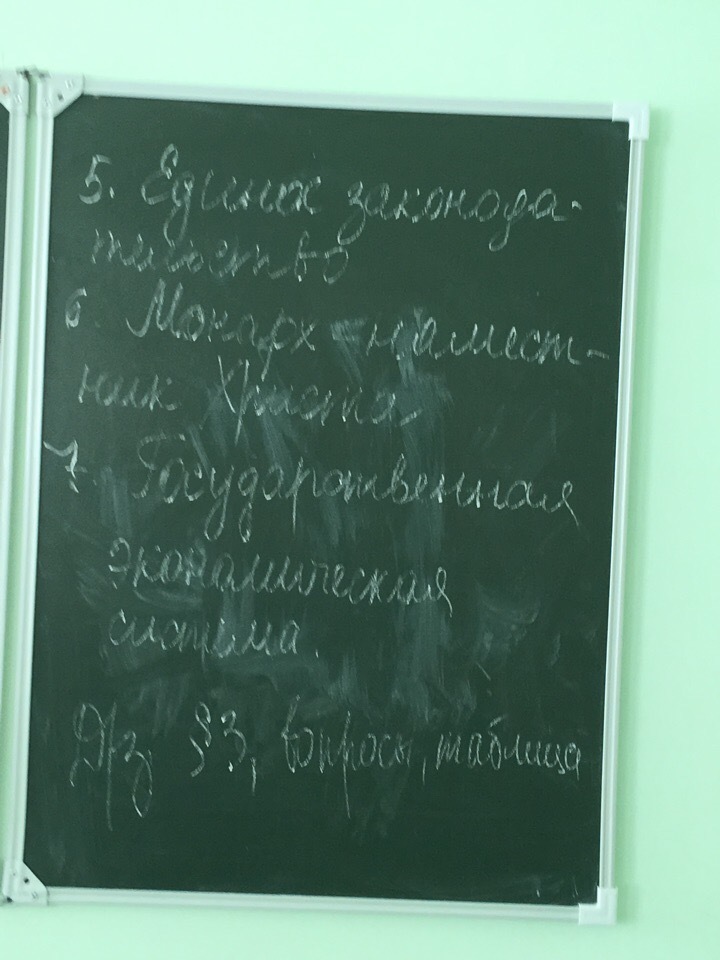 5. Единое законода-
тельство
6. Монарх - намест-
ник Христа
7. Государственная
экономическая
система.
Д/з, §3, вопросы, таблица